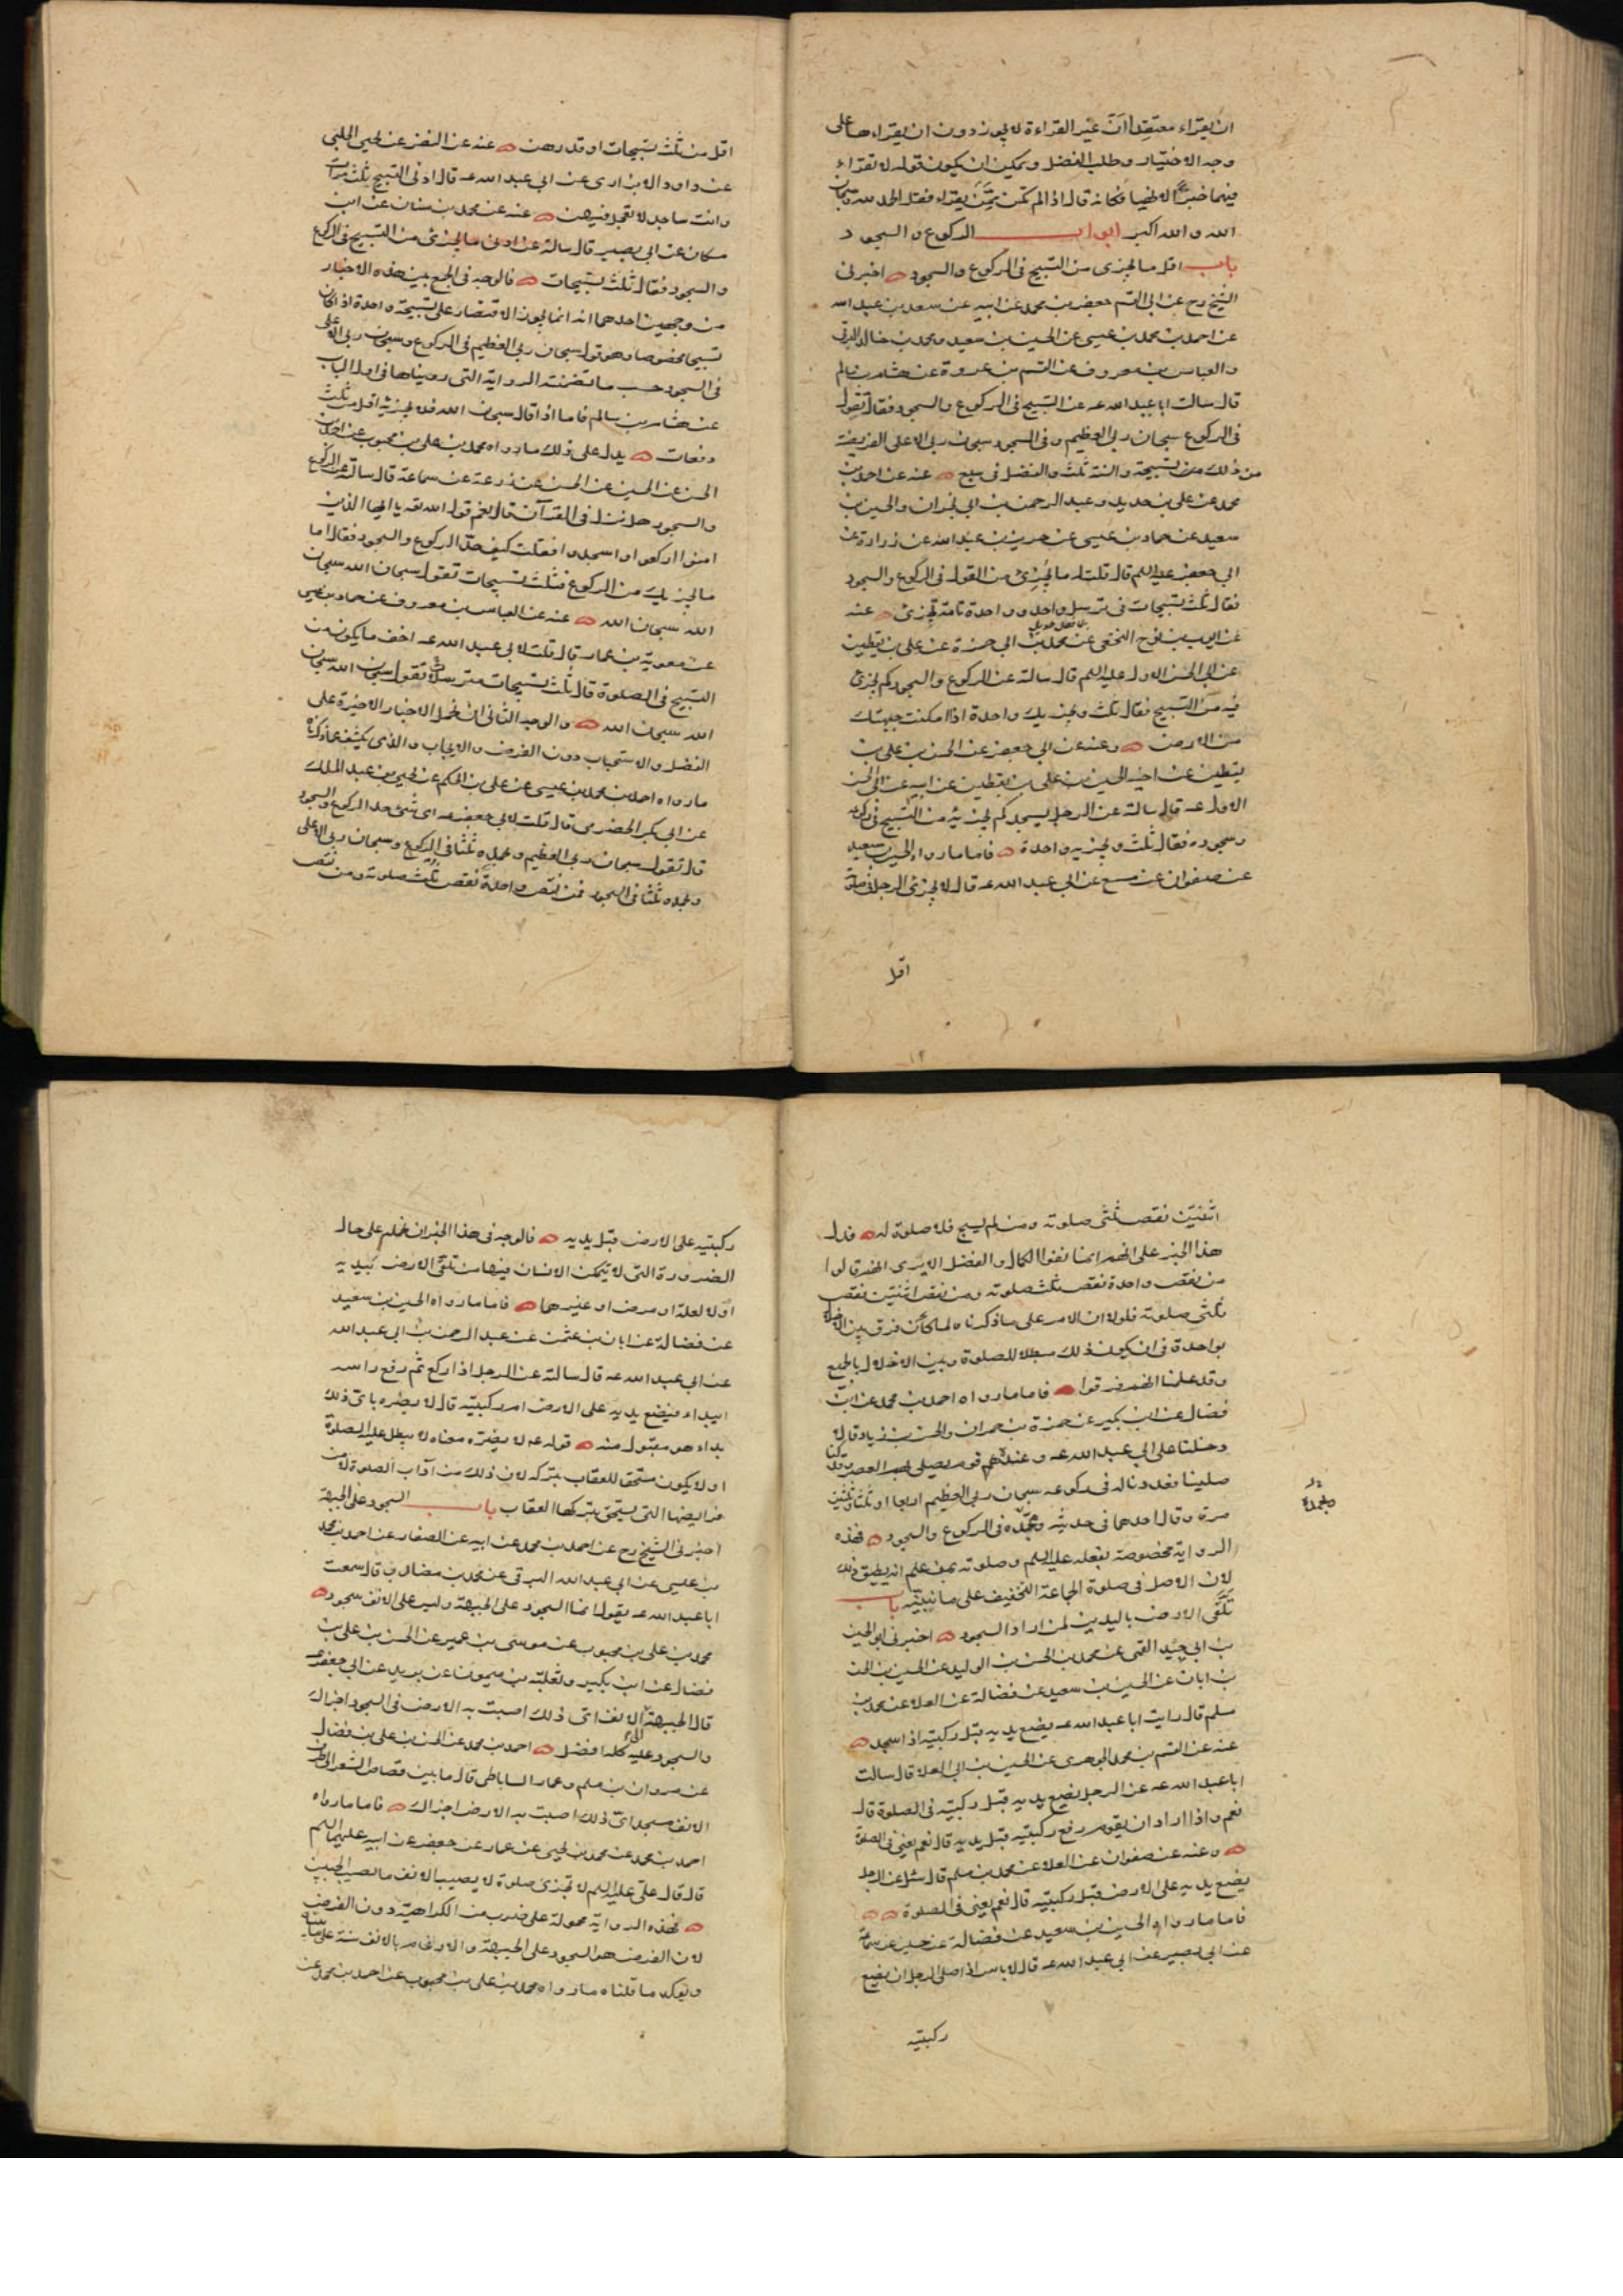 ان يقراء معتقدا ان غير القراءة لا يجوز دون ان يقراءها على
وجه الاختيار وطلب الفضل ويمكن ان يكون قوله لا تقراء
فيهما فكانه قال اذا لم تكن ممن يقراء فقل الحمد لله وسبحان
الله والله اكبر ابواب الركوع والسجود
باب اقل ما يجزى من التسبيح فى الركوع والسجود اخبرنى
الشيخ رح عن ابى القسم جعفر بن محمد عن ابيه عن سعد بن عبد الله
عن احمد بن محمد بن عيسى عن الحسين بن سعيد ومحمد بن خالد البرقى
والعباس بن معروف عن القسم بن عروة عن هشام بن سالم
قال سالت ابا عبد الله عه عن التسبيح فى الركوع والسجود فقال تقول
فى الركوع سبحان ربى العظيم وفى السجود سبحن ربى الاعلى الفريضة
من ذلك من تسبيحة والسنة ثلث والفضل فى سبع عنه عن احمد بن
محمد عن على بن حديد وعبد الرحمن بن ابى نجران والحسين بن
سعيد عن حماد بن عيسى عن حريز بن عبد الله عن زرارة عن
ابى جعفر عليه السلم قال قلت له ما يجزئ من القول فى الركوع والسجود
فقال ثلث تسبيحات فى ترسل واحد وواحدة تامة تجزئ عنه
عن ايوب بن نوح النخعى عن محمد بن ابى حمزة عن على بن يقطين
عن ابى الحسن الاول عليه السلم قال سالته عن الركوع والسجود كم يجزئ
فيه من التسبيح فقال ثلث ويجزيك واحدة اذا امكنت جبهتك
من الارض وعنه عن ابى جعفر عن الحسن بن على بن
يقطين عن اخيه الحسين بن على بن يقطين عن ابيه عن ابى الحسن
الاول عه قال سالته عن الرجل يسجد كم يجزئه من التسبيح فى ركوعه
وسجوده فقال ثلث ويجزيه واحدة فاما ما رواه الحسين بن سعيد
عن صفوان عن مسمع عن ابى عبد الله عه قال لا يجزئ الرجل فى صلوته
اقل
اقل من ثلث تسبيحات او قدرهن عنه عن النضر عن يحيى الحلبى
عن داود الابزارى عن ابى عبد الله عه قال ادنى التسبيح ثلث مرات
وانت ساجد لا تعجل فيهن عنه عن محمد بن سنان عن ابن
مسكان عن ابى بصير قال سالته عن ادنى ما يجزئ من التسبيح فى الركوع
والسجود فقال ثلث تسبيحات فالوجه فى الجمع بين هذه الاخبار
من وجهين احدهما انه انما يجوز الاقتصار على تسبيحة واحدة اذا كان
تسبيحا مخصوصا وهو قول سبحان ربى العظيم فى الركوع وسبحن ربى الاعلى
فى السجود حسب ما تضمنته الرواية التى رويناها فى اول الباب
عن هشام بن سالم فاما اذا قال سبحن الله فلا يجزيه اقل من ثلث
دفعات يدل على ذلك ما رواه محمد بن على بن محبوب عن احمد بن
الحسن عن الحسين عن الحسن عن زرعة عن سماعة قال سالته عن الركوع
والسجود هل نزل فى القرآن قال نعم قول الله تعه يا ايها الذين
امنوا اركعوا واسجدوا فقلت كيف حد الركوع والسجود فقال اما
ما يجزيك من الركوع فثلث تسبيحات تقول سبحان الله سبحان
الله سبحان الله عنه عن العباس بن معروف عن حماد بن عيسى
عن معوية بن عمار قال قلت لابى عبد الله عه اخف ما يكون من
التسبيح فى الصلوة قال ثلث تسبيحات مترسلا تقول سبحن الله سبحان
الله سبحان الله والوجه الثانى ان نحمل الاخبار الاخيرة على
الفضل والاستحباب دون الفرض والايجاب والذى يكشف عما ذكرناه
ما رواه احمد بن محمد بن عيسى عن على بن الحكم عن يحيى بن عبد الملك
عن ابى بكر الحضرمى قال قلت لابى جعفر عه اى شئ حد الركوع والسجود
قال تقول سبحان ربى العظيم وبحمده ثلثا فى الركوع وسبحان ربى الاعلى
وبحمده ثلثا فى السجود فمن نقص واحدة نقص ثلث صلوته ومن نقص
اثنتين نقص ثلثى صلوته ومن لم يسبح فلا صلوة له فدل
هذا الخبر على انهم انما نفوا الكمال والفضل الا ترى انهم قالوا
من نقص واحدة نقص ثلث صلوته ومن نقص اثنتين نقص
ثلثى صلوته فلولا ان الامر على ما ذكرناه لما كان فرق بين الاخلال
بواحدة فى ان يكون ذلك مبطلا للصلوة وبين الاخلال بالجميع
وقد علمنا انهم فرقوا فاما ما رواه احمد بن محمد عن ابن
فضال عن ابن بكير عن حمزة بن حمران والحسن بن زياد قالا
دخلنا على ابى عبد الله عه وعنده قوم يصلى بهم العصر وقد كنا
صلينا فعددنا له فى ركوعه سبحان ربى العظيم اربعا او ثلثا وثلثين
مرة وقال احدهما فى حديثه وبحمده فى الركوع والسجود فهذه
الرواية مخصوصة بفعله عليه السلم وصلوته بمن علم انه يطيق ذلك
لان الاصل فى صلوة الجماعة التخفيف على ما نبينه باب
تلقى الارض باليدين لمن اراد السجود اخبرنى ابو الحسين
بن ابى جيد القمى عن محمد بن الحسن بن الوليد عن الحسين بن الحسن
بن ابان عن الحسين بن سعيد عن فضالة عن العلا عن محمد بن
مسلم قال رايت ابا عبد الله عه يضع يديه قبل ركبتيه اذا سجد
عنه عن القسم بن محمد الجوهرى عن الحسين بن ابى العلا قال سالت
ابا عبد الله عه عن الرجل يضع يديه قبل ركبتيه فى الصلوة قال
نعم واذا اراد ان يقوم رفع ركبتيه قبل يديه قال نعم يعنى فى الصلوة
وعنه عن صفوان عن العلا عن محمد بن مسلم قال سئل عن الرجل
يضع يديه على الارض قبل ركبتيه قال نعم يعنى فى الصلوة
فاما ما رواه الحسين بن سعيد عن فضالة عن حسين عن سماعة
عن ابى بصير عن ابى عبد الله عه قال لا باس اذا صلى الرجل ان يضع
ركبتيه
ركبتيه على الارض قبل يديه فالوجه فى هذا الخبر ان نحمله على حال
الضرورة التى لا يتمكن الانسان فيها من تلقى الارض بيديه
اولا لعلة او مرض او غيرهما فاما ما رواه الحسين بن سعيد
عن فضالة عن ابان بن عثمن عن عبد الرحمن بن ابى عبد الله
عن ابى عبد الله عه قال سالته عن الرجل اذا ركع ثم رفع راسه
ايبداء فيضع يديه على الارض ام ركبتيه قال لا يضره باى ذلك
بداء هو مقبول منه قوله عه لا يضره معناه لا يبطل عليه الصلوة
او لا يكون مستحقا للعقاب بتركه لان ذلك من آداب الصلوة لا من
فرايضها التى يستحق بتركها العقاب باب السجود على الجبهة
اخبرنى الشيخ رح عن احمد بن محمد عن ابيه عن الصفار عن احمد بن محمد
بن عيسى عن ابى عبد الله البرقى عن محمد بن مضارب قال سمعت
ابا عبد الله عه يقول انما السجود على الجبهة وليس على الانف سجود
محمد بن على بن محبوب عن موسى بن عمير عن الحسن بن على بن
فضال عن ابن بكير وثعلبة بن ميمون عن بريد عن ابى جعفر عه
قال الجبهة الى الانف اى ذلك اصبت به الارض فى السجود اجزاك
والسجود عليه كله افضل احمد بن محمد عن الحسن بن على بن فضال
عن مروان بن مسلم وعمار الساباطى قال ما بين قصاص الشعر الى طرف
الانف مسجد اى ذلك اصبت به الارض اجزاك فاما ما رواه
احمد بن محمد عن محمد بن يحيى عن عمار عن جعفر عن ابيه عليهما السلم
قال قال على عليه السلم لا تجزى صلوة لا يصيب الانف ما يصيب الجبين
فهذه الرواية محمولة على ضرب من الكراهية دون الفرض
لان الفرض هو السجود على الجبهة والارغام بالانف سنة على ما بينا
ويوكد ما قلناه ما رواه محمد بن على بن محبوب عن احمد بن محمد عن